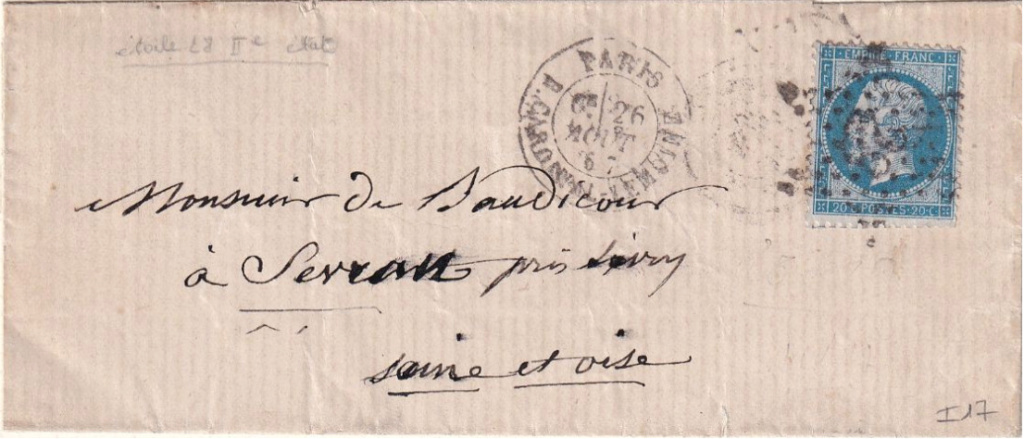 étoile 28 IIe état
PARIS
R. CARDINAL-LEMOINE
26
AOUT
EMPIRE FRANC
20 C POSTES 20 C
Monsieur de Baudicour
à Sevran près Livry
Seine et oise
I 17